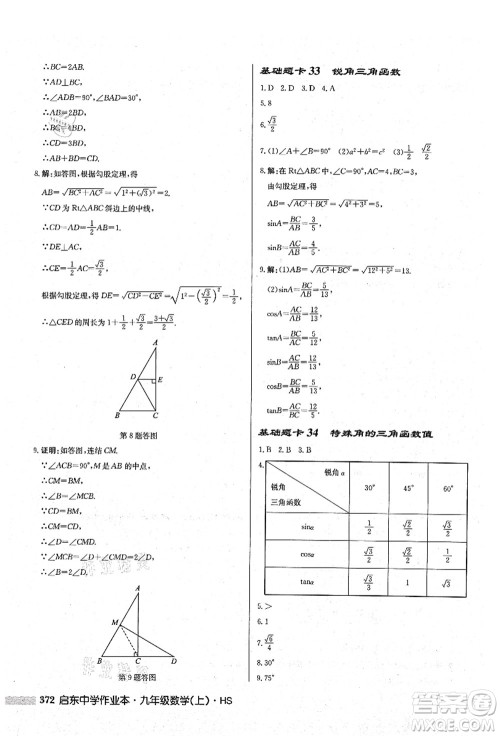 ∴BC=2AB.
∵AD⊥BC,
∴∠ADB=90°,
∴AB=2BD,
∴BC=4BD,
∴CD=3BD.
8.解:根据勾股定理,得
AB=√BC²+AC²=√1²+(√3)²=2.
∵CD为Rt△ABC斜边上的中线,
∴CD=1/2AB=1.
∵∠A=30°,
∴CE=1/2AC=√3/2.
根据勾股定理,得DE=√CD²-CE²=√1²-(√3/2)²=1/2.
∴△CED的周长为1+√3/2+1/2=3+√3/2.
A
D
E
B
C
第8题答图
9.证明:如答图,连结CM.
∵∠ACB=90°,M是AB的中点,
∴CM=1/2AB=BM.
∵CD=BM,
∴CM=CD,
∴∠D=∠CMD.
∴∠MCB=∠D+∠CMD=2∠D.
∵∠MCB=∠B,
∴∠B=2∠D.
A
M
B
C
D
第9题答图
372 启东中学作业本·九年级数学(上)·HS
基础题卡33 锐角三角函数
1.D 2.D 3.D 4.A
5.8
6.√3/2
7.(1)∠A+∠B=90° (2)a²+b²=c² (3)a/c b/c a/b
8.解:在Rt△ABC中,
由勾股定理,得AB=√AC²+BC²=√4²+3²=5,
sinA=BC/AB=3/5,
sinB=AC/AB=4/5.
9.解:(1)AB=√AC²+BC²=√12²+5²=13.
(2)sinA=BC/AB=5/13,
cosA=AC/AB=12/13,
tanA=BC/AC=5/12,
sinB=AC/AB=12/13,
cosB=BC/AB=5/13,
tanB=AC/BC=12/5.
基础题卡34 特殊角的三角函数值
1.D 2.B 3.B
4. 锐角α 锐角三角函数 30° 45° 60°
sinα 1/2 √2/2 √3/2
cosα √3/2 √2/2 1/2
tanα √3/3 1 √3
5.>
6.60°
9.75°